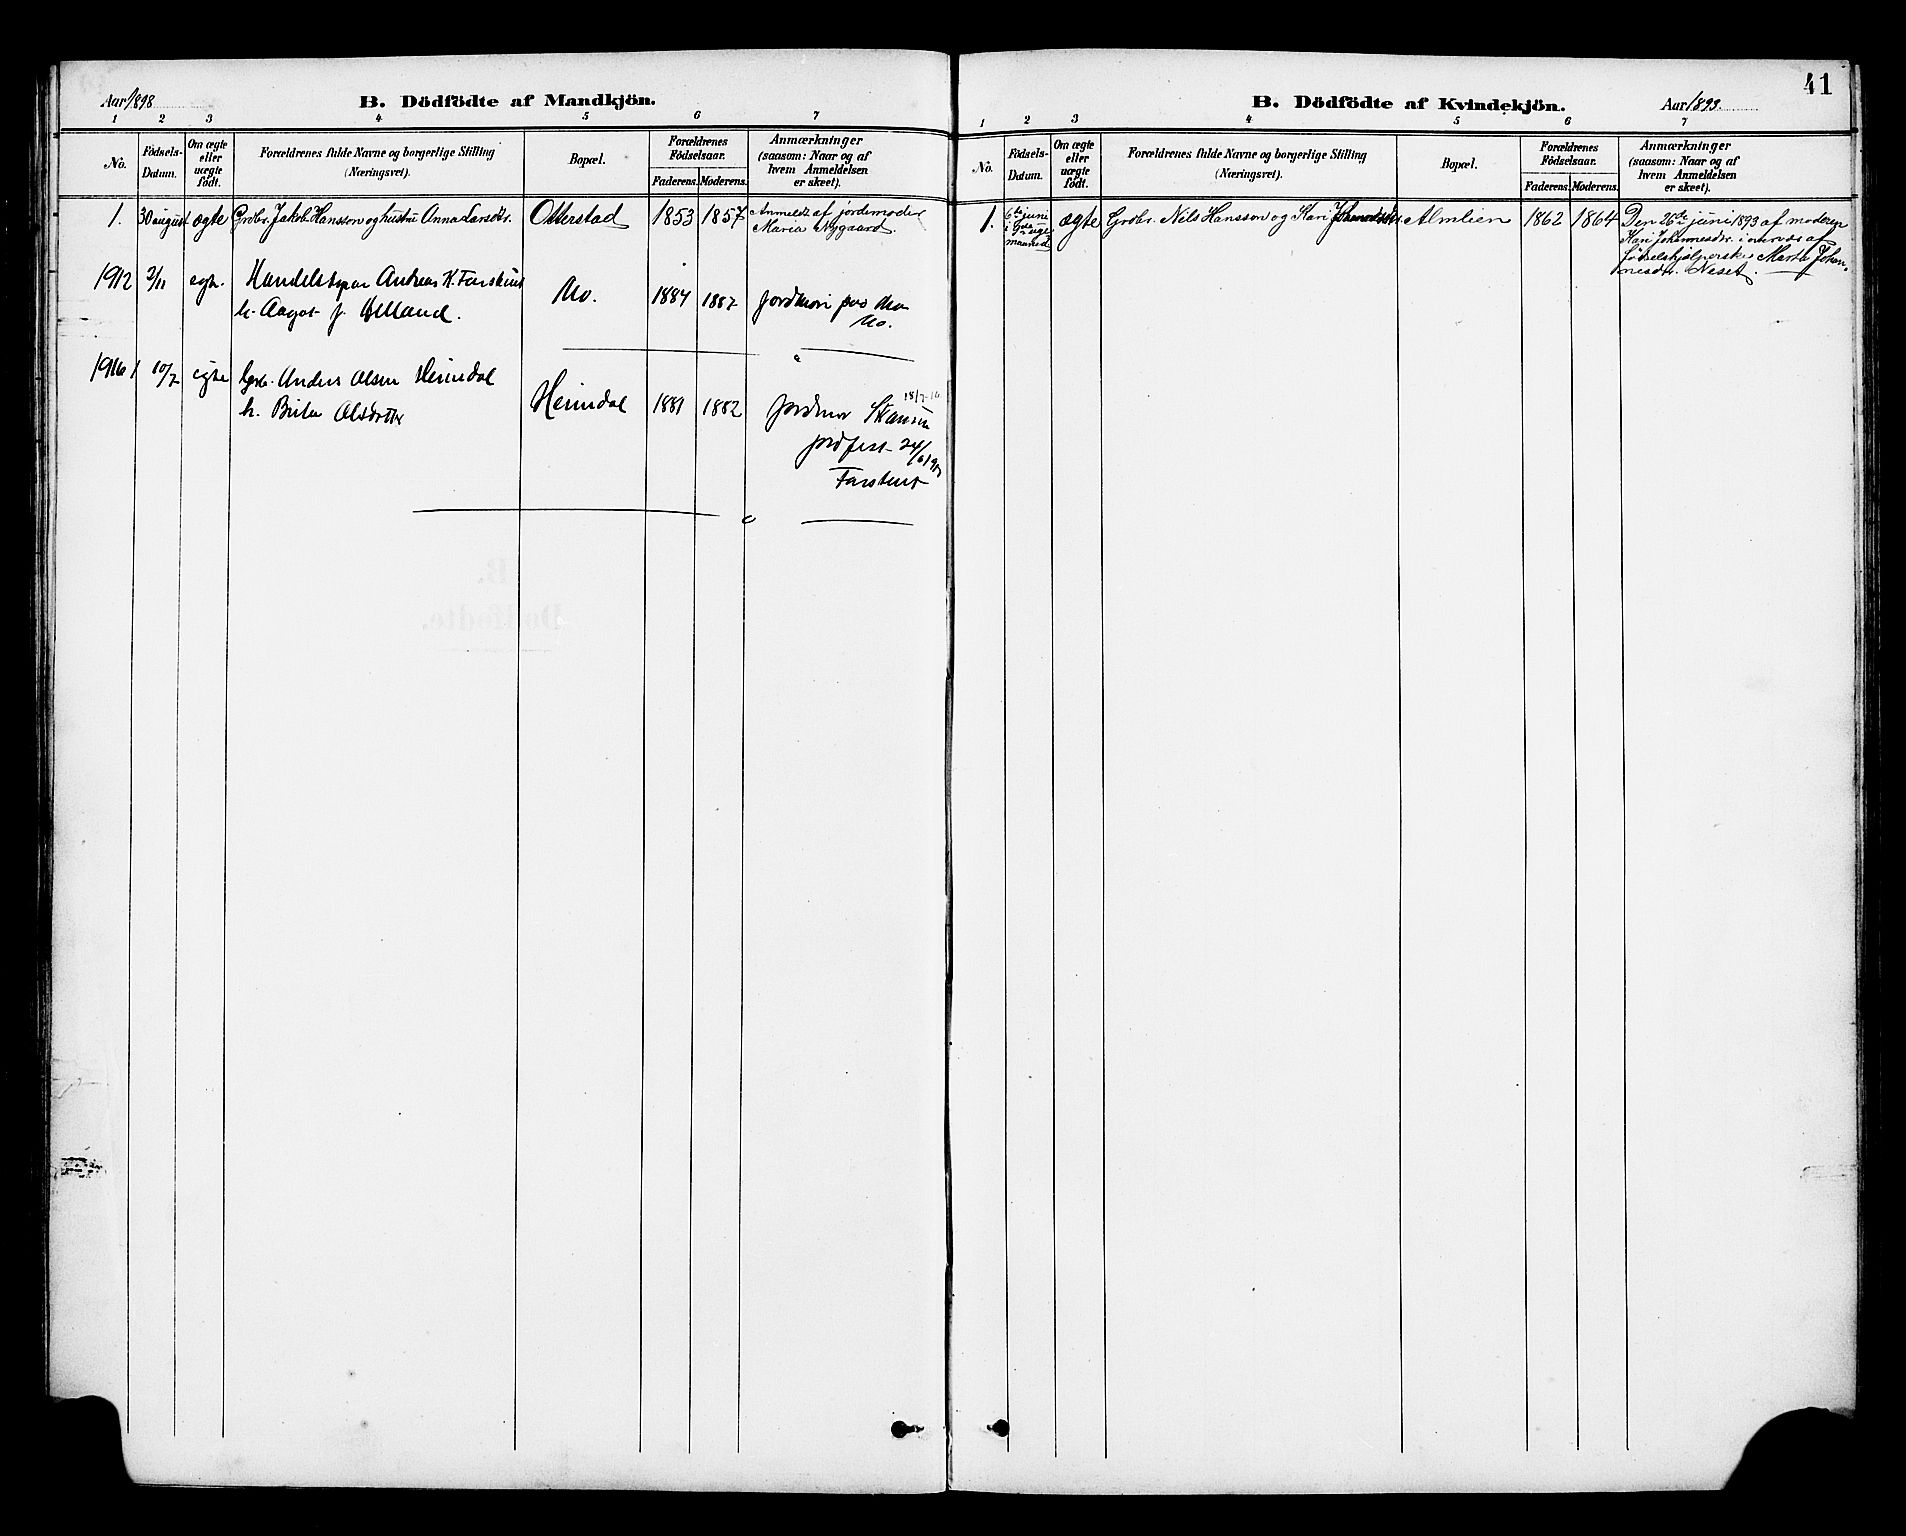 Aar 1898
B. Dödfödte af Mandkjön.
1 2 3 4 5 6 7
No.
Födsels-
Datum.
Om ægte
eller
uægte
födt.
Forældrenes fulde Navne og borgerlige Stilling
(Næringsvei).
Bopæl.
Forældrenes
Födselsaar.
Faderens. Moderens.
Anmærkninger
(saasom: Naar og af
hvem Anmeldelsen
er skeet).
1. 30 august ægte Grdbr. Jakob Hansson og hustru Anna Larsdtr. Otterstad 1853 1857 Anmeldt af jordemoder
Maria Nygaard.
1912 2/11 egte Andreas K. Farstveit
h. Aagot f. Helland.
Mo. 1884 1887
Mo.
1916 1 10/7 egte Grb. Anders Olsen Heimdal
h. Brita Olsdotter
Heimdal 1881 1882 jordmor
18/7-16
jordfest
41
B. Dödfödte af Kvindekjön.
Aar 1893.
1 2 3 4 5 6 7
No.
Födsels-
Datum.
Om ægte
eller
uægte
födt.
Forældrenes fulde Navne og borgerlige Stilling
(Næringsvei).
Bopæl.
Forældrenes
Födselsaar.
Faderens. Moderens.
Anmærkninger
(saasom: Naar og af
hvem Anmeldelsen
er skeet).
1. 6te juni
maaned
ægte Grdbr. Nils Hansson og Kari Johannesdtr. Almlien 1862 1864 Den 26de juni 1893 af moderen
Kari Johannesdtr. i nærvær af
fødselshjælperske Marta Johan-
nesdtr. Neset.
B.
Dödfödte.